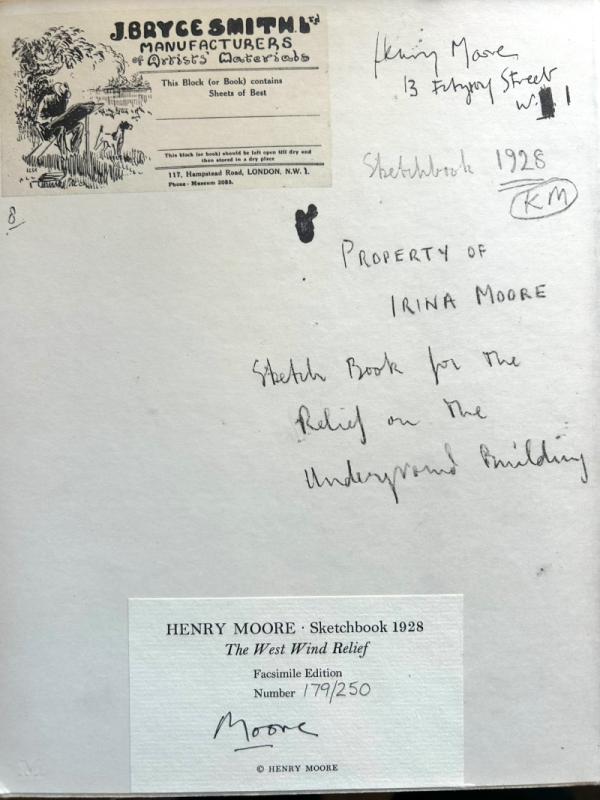 J. BRYCE SMITH. Ltd
MANUFACTURERS
of Artists' Materials
This Block (or Book) contains
Sheets of Best
This block (or book) should be left open till dry and
then stored in a dry place
117, Hampstead Road, LONDON, N.W.1.
Phone - Museum 2085.
Henry Moore
13 Fitzroy Street
W. 1
Sketchbook 1928
KM
8
PROPERTY OF
IRINA MOORE
Sketch Book for the
Relief on the
Underground Building
HENRY MOORE · Sketchbook 1928
The West Wind Relief
Facsimile Edition
Number 179/250
Moore
© HENRY MOORE